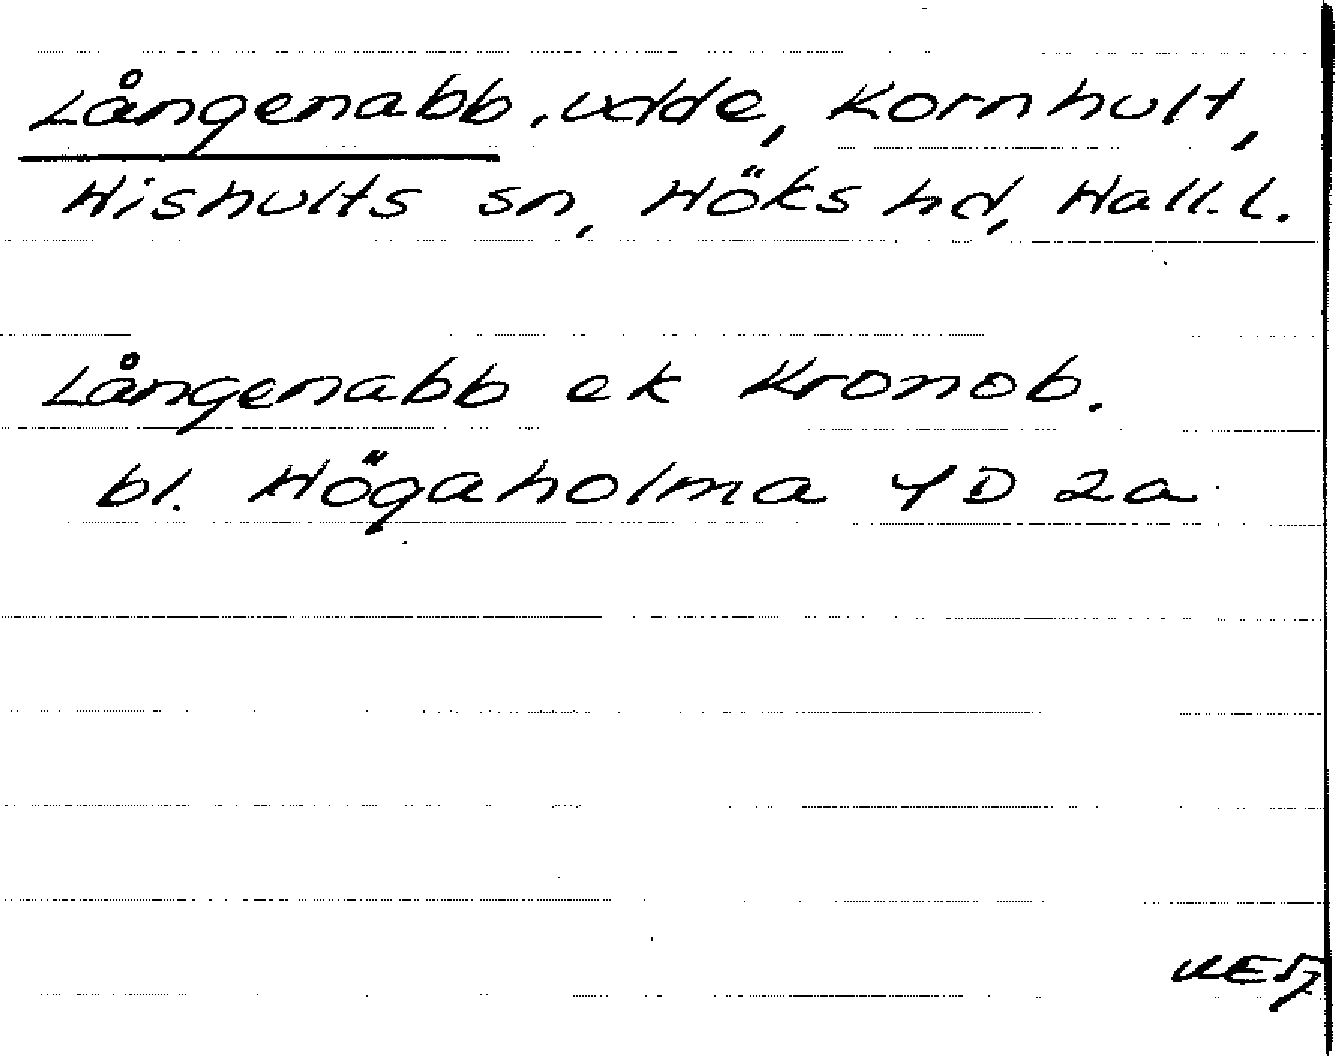 Långenabb, udde, Kornhult,
Hishults sn, Höks hd, Hall. l.
Långenabb ek Kronob.
bl. Högaholma 4D 2a